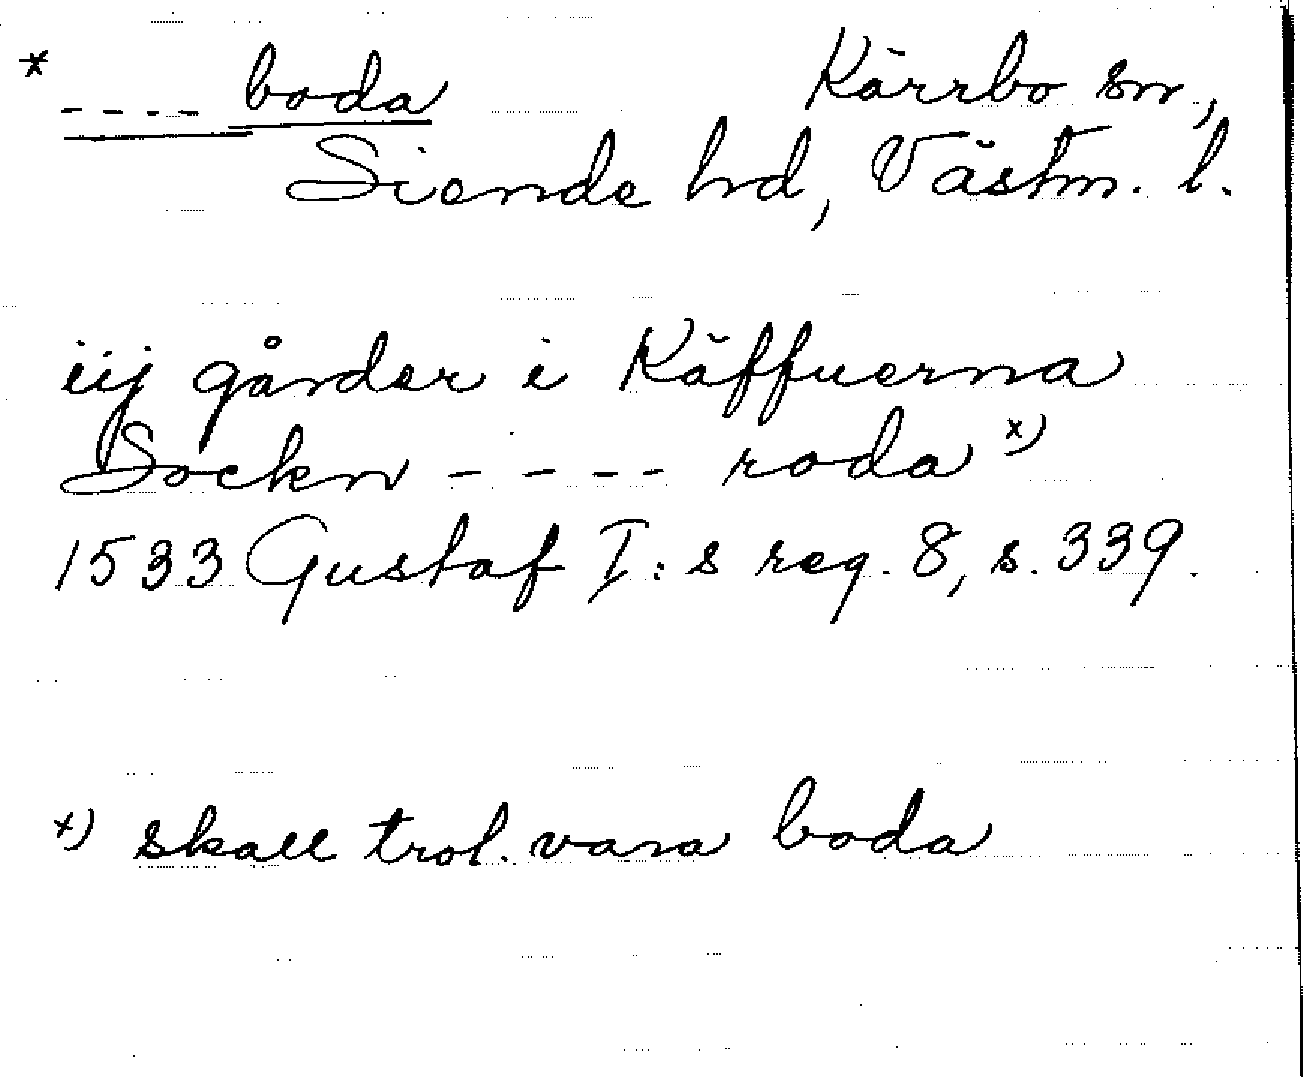 * ---- boda Kärrbo sn,
Siende hd, Västm. l.
iij gårder i Käffuerna
Sockn ---- roda x)
1533 Gustaf I:s reg. 8, s. 339.
x) skall trol. vara boda